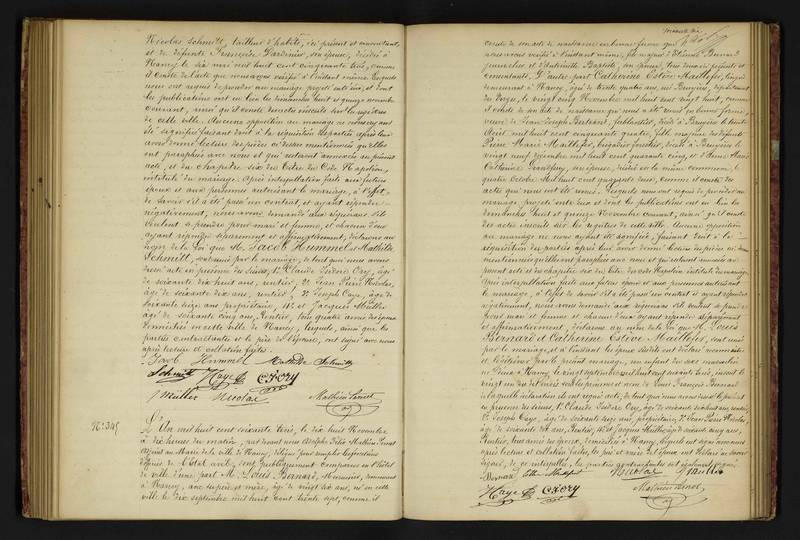 Nicolas Schmitt, tailleur d'habits, ici présent et consentant,
et de défunte Françoise Dardinier, son épouse, décédée à
Nancy le six mai mil huit cent cinquante trois, comme
il conste de l'acte que nous avons vérifié à l'instant même. Lesquels
nous ont requis de procéder au mariage projeté entre eux, et dont
les publications ont eu lieu les dimanches huit et quinze novembre
courant, ainsi qu'il conste des actes inscrits sur les registres
de cette ville. Aucune opposition au mariage ne nous ayant
été signifiée, faisant droit à la réquisition des parties, après leur
avoir donné lecture des pièces ci-dessus mentionnées qu'elles
ont paraphées avec nous et qui restent annexées au présent
acte, et du chapitre six du titre du Code Napoléon,
intitulé du mariage. Après interpellation faite aux futurs
époux et aux personnes autorisant le mariage, à l'effet
de savoir s'il a été passé un contrat, et ayant répondu
négativement, nous avons demandé aux
veulent se prendre pour mari et femme, et chacun d'eux
ayant répondu séparément et affirmativement, déclarons au
nom de la loi que M. Jacob Hummel et Mathilde
Schmitt, sont unis par le mariage, de tout quoi nous avons
dressé acte en présence des Sieurs, 1° Claude Isidore Cry, âgé
de soixante dix huit ans, rentier, 2° Jean Pierre Nicolas,
âgé de soixante dix ans, rentier, 3° Joseph Haye, âgé de
soixante seize ans, propriétaire, 4° et Jacques Müller
âgé de soixante cinq ans, Rentier, tous quatre amis des époux
domiciliés en cette ville de Nancy, lesquels, ainsi que les
parties contractantes et le père de l'épouse, ont signé avec nous
après lecture et collation faites.
Jacob Hummel Mathilde Schmitt
Schmitt Haye CICry
J Müller Nicolas Mathieu
N° 345
L'An mil huit cent soixante trois, le dix huit Novembre
à dix heures du matin, par devant nous Adolphe Félix Mathieu
Adjoint au Maire de la ville de Nancy, délégué pour remplir les fonctions
d'officier de l'Etat civil, sont publiquement comparus en l'hôtel
de ville d'une part M. Louis Bernard, Menuisier, demeurant
à Nancy, avec ses père et mère, âgé de vingt six ans, né en cette
ville le dix septembre mil huit cent trente sept, comme il
conste de son acte de naissance en bonne forme que
nous avons vérifié à l'instant même, fils majeur d'Etienne Bernard
et d'Antoinette Baptiste, son épouse, tous deux ici présents et
consentants. D'autre part Catherine Estève Maillefer,
demeurant à Nancy, âgée de trente quatre ans, née Bruyères, département
des Vosges, le vingt cinq Novembre mil huit cent vingt huit, comme
il conste de son acte de naissance
veuve de Jean Joseph Bertrand, ferblantier, décédé à Bruyères le trente
Avril mil huit cent cinquante quatre, fille majeure des défunts
Pierre Marie Maillefer, brigadier forestier, décédé à Bruyères le
vingt neuf décembre mil huit cent quarante cinq, et d'Anne Marie
Catherine son épouse, décédée en la même commune le
quatre octobre mil huit cent comme il conste des
actes qui nous ont été remis. Lesquels nous ont requis de procéder au
mariage projeté entre eux et dont les publications ont eu lieu les
dimanches huit et quinze Novembre courant, ainsi qu'il conste
des actes inscrits sur les registres de cette ville. Aucune opposition
au mariage ne nous ayant été signifiée, faisant droit à la
réquisition des parties après leur avoir donné lecture des pièces ci-dessus
mentionnées qu'elles ont paraphées avec nous et qui restent annexées au
présent acte et du chapitre six du titre du code Napoléon intitulé du mariage.
Après interpellation faite aux futurs époux et aux personnes autorisant
le mariage, à l'effet de savoir s'il a été passé un contrat et ayant répondu
négativement, nous avons demandé aux veulent se prendre
pour mari et femme et chacun d'eux ayant répondu séparément
et affirmativement, déclarons au nom de la loi que M. Louis
Bernard et Catherine Estève Maillefer, sont unis
par le mariage, et à l'instant les époux susdits ont déclaré reconnaître
et légitimer par le présent mariage, un enfant du sexe masculin
né à Nancy, le vingt septembre mil huit cent soixante trois, inscrit le
vingt un du dit mois sous les prénoms et nom de Louis François Bernard
de laquelle déclaration ils ont requis acte, de tout quoi nous avons dressé le présent
en présence des Sieurs, 1° Claude Isidore Cry, âgé de soixante dix huit ans, rentier,
2° Joseph Haye, âgé de soixante seize ans, propriétaire, 3° Jean Pierre Nicolas,
âgé de soixante dix ans, Rentier, 4° et Jacques Müller âgé de soixante cinq ans,
Rentier, tous amis des époux, domiciliés à Nancy, lesquels ont signé avec nous
après lecture et collation faites, les père et mère de l'époux ont déclaré ne savoir
signer, de ce interpellés, les parties contractantes ont également signé.
Bernard Esther Maillefer Nicolas J Müller
Haye CICry Mathieu